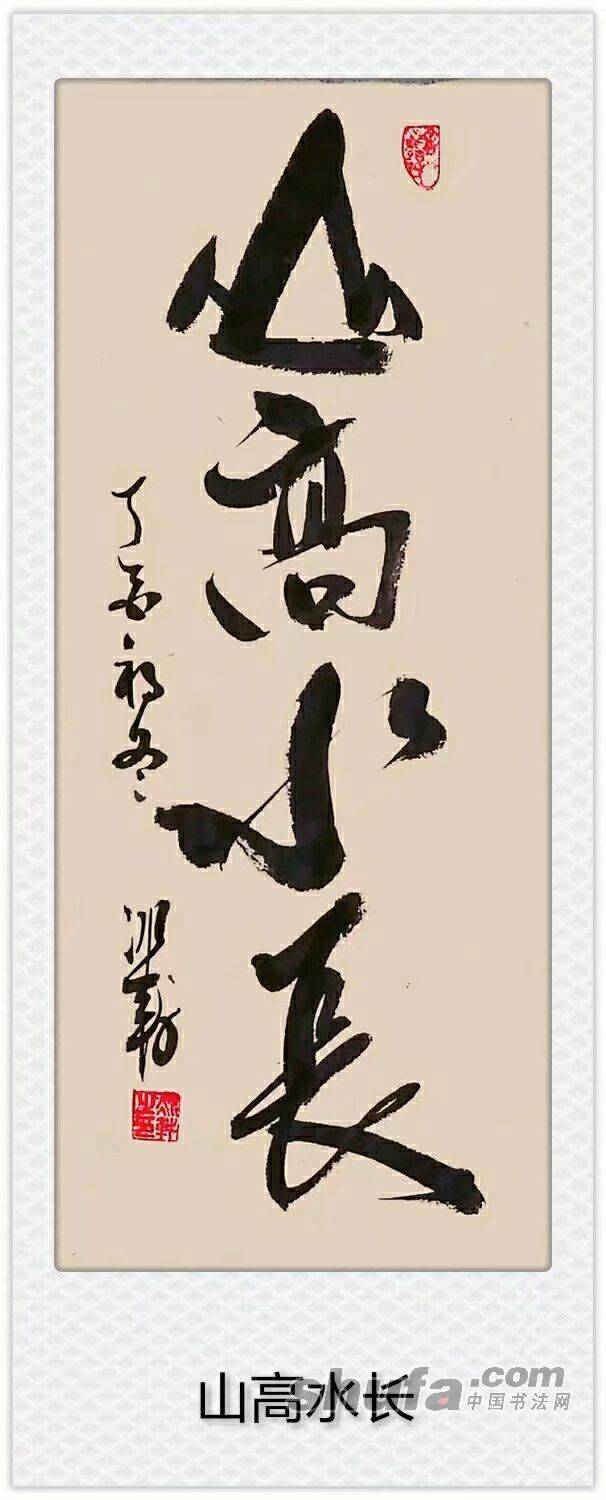 山高水長
丁酉初冬
山高水长
shufa.com
中国书法网